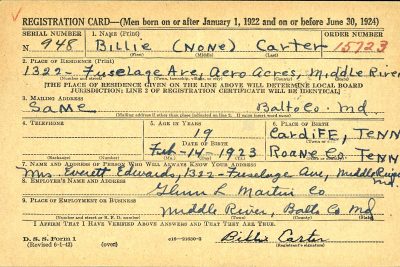 REGISTRATION CARD—(Men born on or after January 1, 1922 and on or before June 30, 1924)
SERIAL NUMBER 1. NAME (Print) ORDER NUMBER
N 948 Billie (None) Carter 15723
(First) (Middle) (Last)
2. PLACE OF RESIDENCE (Print)
1322 - Fuselage Ave, Aero Acres, Middle River
(Number and street) (Town, township, village, or city) (County) (State)
[THE PLACE OF RESIDENCE GIVEN ON THE LINE ABOVE WILL DETERMINE LOCAL BOARD
JURISDICTION; LINE 2 OF REGISTRATION CERTIFICATE WILL BE IDENTICAL]
3. MAILING ADDRESS
Same Balto Co. Md.
[Mailing address if other than place indicated on line 2. If same insert word same]
4. TELEPHONE 5. AGE IN YEARS 6. PLACE OF BIRTH
19 Cardiff, Tenn
DATE OF BIRTH (Town or county)
Feb - 14 - 1923 Roane Co. Tenn
(Exchange) (Number) (Mo.) (Day) (Yr.) (State or country)
7. NAME AND ADDRESS OF PERSON WHO WILL ALWAYS KNOW YOUR ADDRESS
Mrs. Everett Edwards, 1322 - Fuselage Ave, Middle River Md
8. EMPLOYER'S NAME AND ADDRESS
Glenn L Martin Co
9. PLACE OF EMPLOYMENT OR BUSINESS
Middle River, Balto Co Md
(Number and street or R. F. D. number) (Town) (County) (State)
I AFFIRM THAT I HAVE VERIFIED ABOVE ANSWERS AND THAT THEY ARE TRUE.
D. S. S. Form 1
(Revised 6-1-42) (over) c16—21630-2 Billie Carter
(Registrant's signature)